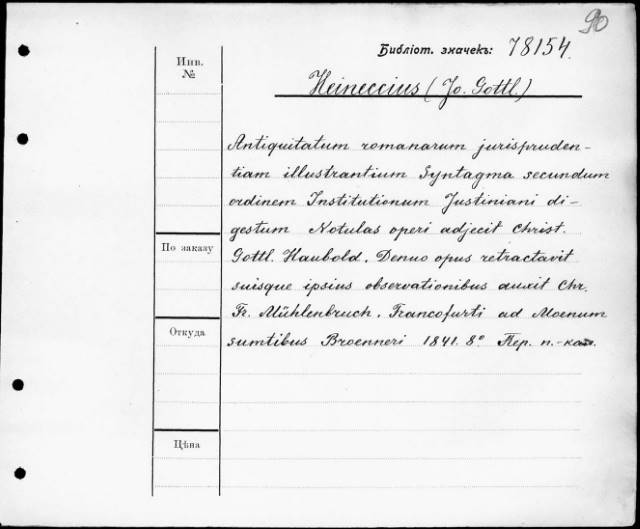 90
Библіот. значекъ: 78154.
Инв.
№
Heineccius (Jo. Gottl.)
Antiquitatum romanarum jurispruden-
tiam illustrantium Syntagma secundum
ordinem Institutionum Justiniani di-
gestum Notulas operi adjecit Christ.
По заказу
Gottl. Haubold. Denuo opus retractavit
suisque ipsius observationibus auxit Chr.
Fr. Mühlenbruch. Francofurti ad Moenum
Откуда
sumtibus Broenneri 1841. 8º Пер. п.-кож.
Цѣна